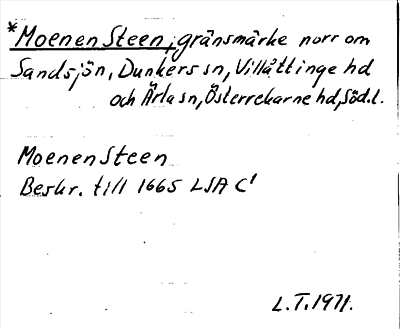 *Moenen Steen, gränsmärke norr om
Sandsjön, Dunkers sn, Villåttinge hd
och Ärla sn, Österrekarne hd, Söd.l.
Moenen Steen
Beskr. till 1665 LSA C1
L.T. 1971.